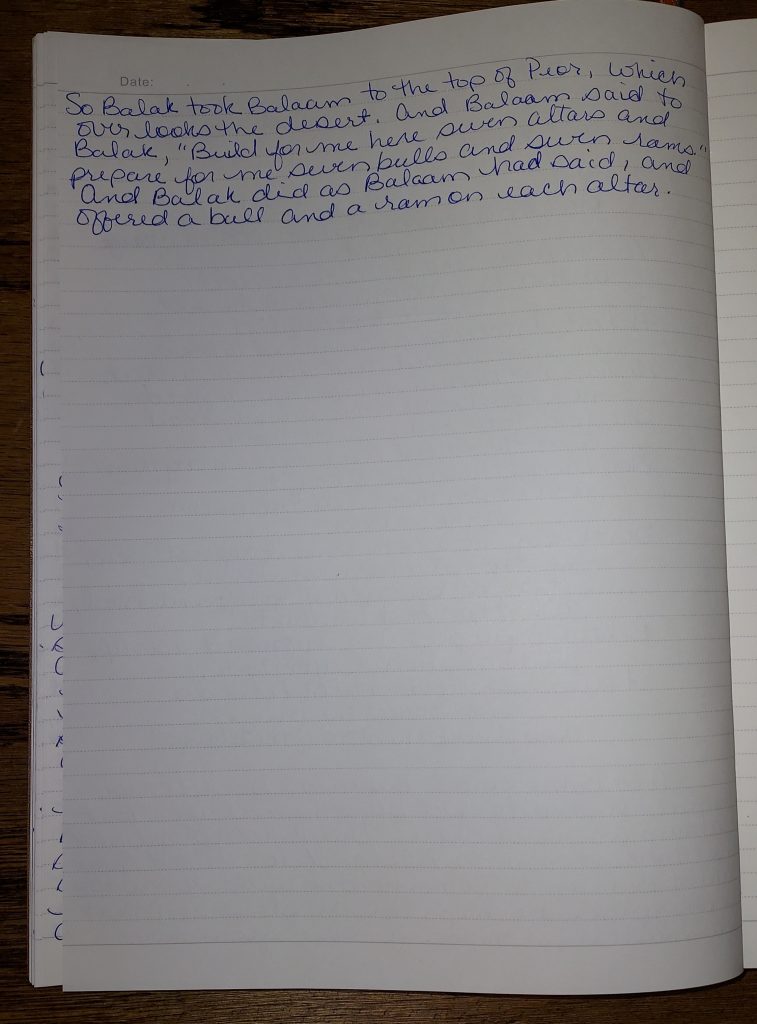 Date:
So Balak took Balaam to the top of Peor, which
overlooks the desert. And Balaam said to
Balak, "Build for me here seven altars and
prepare for me seven bulls and seven rams."
And Balak did as Balaam had said, and
offered a bull and a ram on each altar.